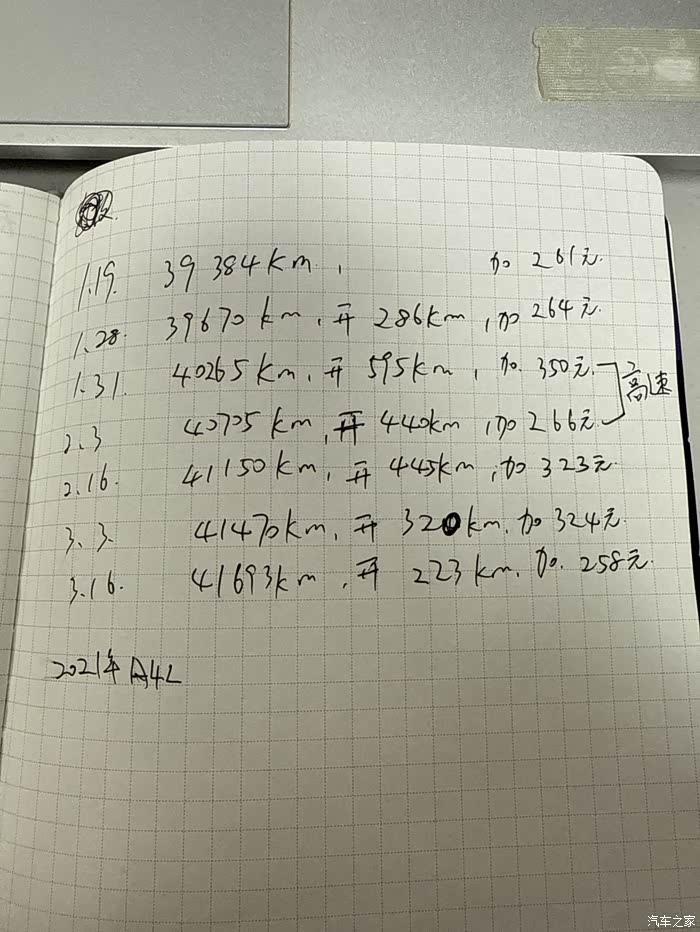 1.19. 39384km, 加261元.
1.28. 39670km, 开286km, 加264元.
1.31. 40265km, 开595km, 加.350元.
高速
2.3 40705km, 开440km, 加266元.
2.16. 41150km, 开445km, 加323元.
3.3. 41470km, 开320km. 加324元.
3.16. 41693km, 开223km. 加.258元.
2021年A4L
汽车之家